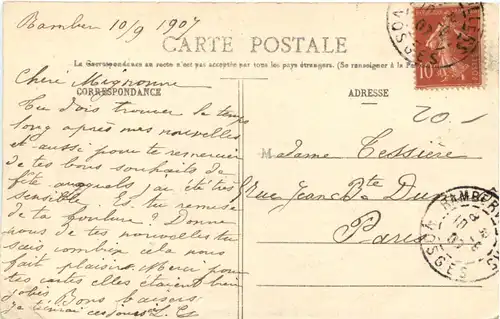 Rambervillers 10/9 1907
CARTE POSTALE
La Correspondance au recto n'est pas acceptée par tous les pays étrangers. (Se renseigner à la
CORRESPONDANCE
ADRESSE
Cheré Mignonne
Tu dois trouver le temps
long après mes nouvelles
et aussi pour te remercier
de tes bons souhaits de
fête auxquels j'ai été très
sensible. Es tu remise
de ta foulure? Donne
nous de tes nouvelles tu
sais combien cela nous
fait plaisir. Merci pour
tes cartes elles étaient bien
jolies Bons baisers
Je t'écrirai ces jours ci L. G
20.-
Madame Tessière
rue Jean Bte Du
Paris
10
VOSGES
RAMBERVILLERS
VOSGES